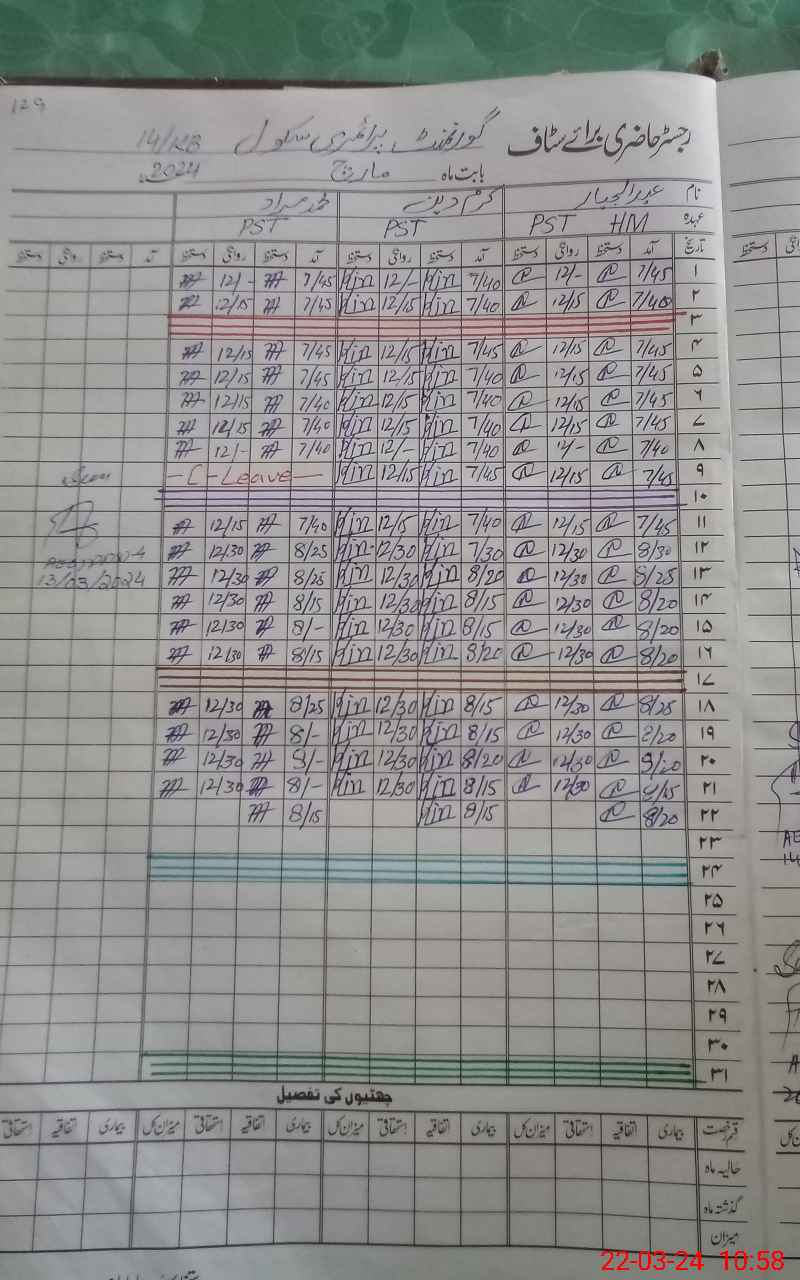 129
رجسٹر حاضری برائے سٹاف گورنمنٹ پرائمری سکول 14/KB
بابت ماہ مارچ 2024ء
نام عبدالجبار کرم دین محمد مراد
عہدہ PST HM PST PST
تاریخ آمد دستخط روانگی دستخط آمد دستخط روانگی دستخط آمد دستخط روانگی دستخط آمد دستخط روانگی دستخط
۱ 7/45 12/- 7/40 12/- 7/45 12/-
۲ 7/40 12/15 7/40 12/15 7/45 12/15
۳
۴ 7/45 12/15 7/45 12/15 7/45 12/15
۵ 7/45 12/15 7/40 12/15 7/45 12/15
۶ 7/45 12/15 7/40 12/15 7/40 12/15
۷ 7/45 12/15 7/40 12/15 7/40 12/15
۸ 7/40 12/- 7/40 12/- 7/40 12/-
۹ 7/45 12/15 7/45 12/15 - C - Leave -
۱۰
۱۱ 7/45 12/15 7/40 12/15 7/40 12/15
۱۲ 8/30 12/30 7/30 12/30 8/25 12/30
۱۳ 8/25 12/30 8/20 12/30 8/25 12/30
13/03/2024
۱۴ 8/20 12/30 8/15 12/30 8/15 12/30
۱۵ 8/20 12/30 8/15 12/30 8/- 12/30
۱۶ 8/20 12/30 8/20 12/30 8/15 12/30
۱۷
۱۸ 8/25 12/30 8/15 12/30 8/25 12/30
۱۹ 8/20 12/30 8/15 12/30 8/- 12/30
۲۰ 12/30 8/20 12/30 12/30
۲۱ 12/30 8/15 12/30 8/- 12/30
۲۲ 8/20 8/15 8/15
۲۳
۲۴
۲۵
۲۶
۲۷
۲۸
۲۹
۳۰
۳۱
چھٹیوں کی تفصیل
قسم رخصت بیماری اتفاقیہ استحقاقی میزان کل بیماری اتفاقیہ استحقاقی میزان کل بیماری اتفاقیہ استحقاقی میزان کل بیماری اتفاقیہ استحقاقی
حالیہ ماہ
گذشتہ ماہ
میزان
22-03-24 10:58